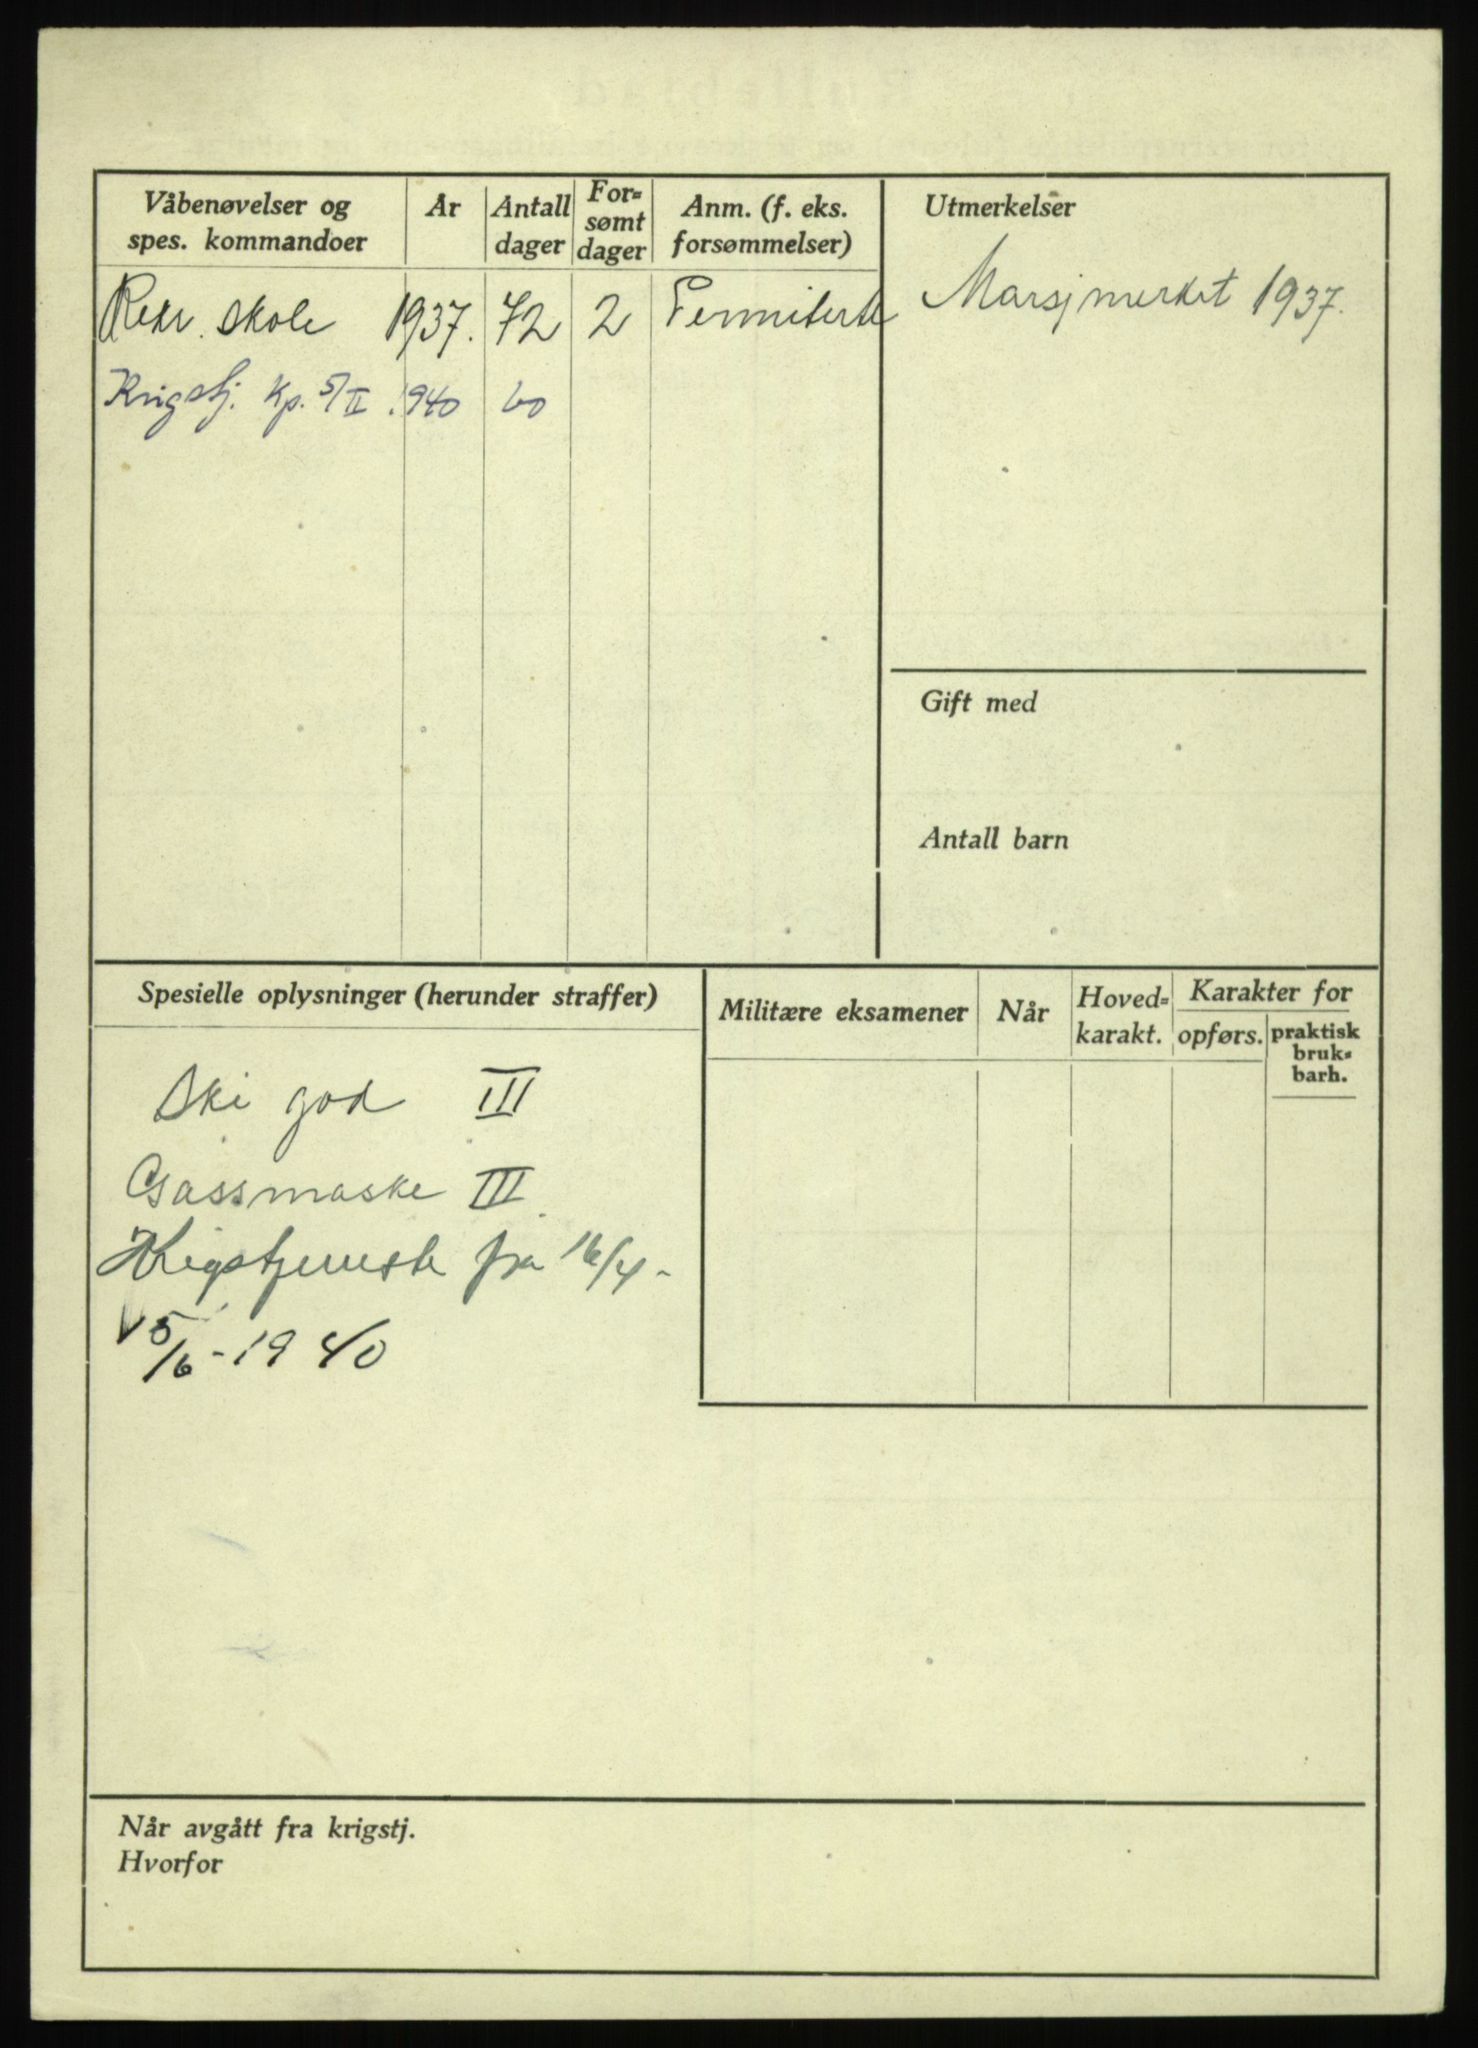 Våbenøvelser og
spes. kommandoer
Ar
Antall
dager
For=
sømt
dager
Anm. (f. eks.
forsømmelser)
Rekr. skole 1937. 72 2 Permitert
Krigstj. Kp. 5/II 1940 60
Utmerkelser
Marsjmerket 1937.
Gift med
Antall barn
Spesielle oplysninger (herunder straffer)
Ski god III
Gassmaske III
Krigstjeneste fra 16/4 -
5/6 - 1940
Militære eksamener
Når
Hoved=
karakt.
Karakter for
opførs.
praktisk
bruk=
barh.
Når avgått fra krigstj.
Hvorfor